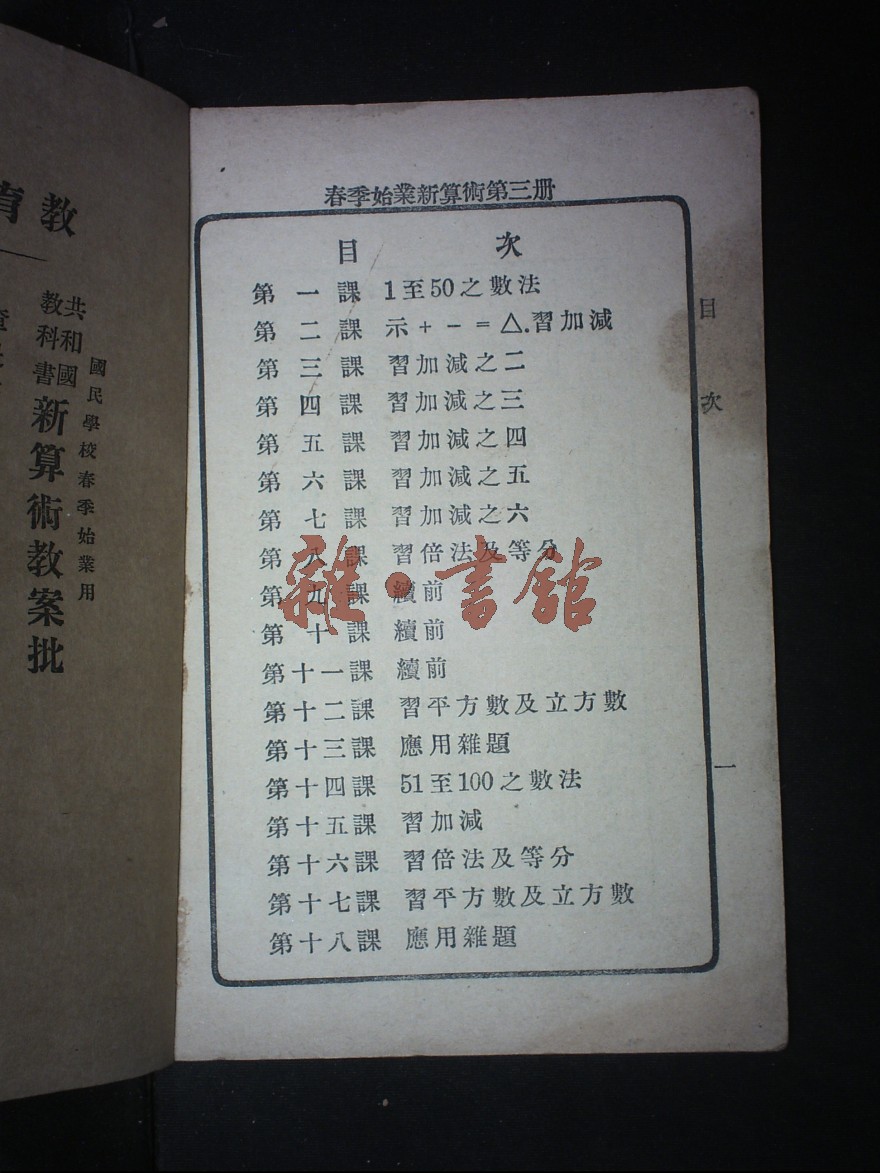 春季始業新算術第三册
目次
第一課 1至50之數法
第二課 示+-=△.習加減
第三課 習加減之二
第四課 習加減之三
第五課 習加減之四
第六課 習加減之五
第七課 習加減之六
第八課 習倍法及等分
第九課 續前
第十課 續前
第十一課 續前
第十二課 習平方數及立方數
第十三課 應用雜題
第十四課 51至100之數法
第十五課 習加減
第十六課 習倍法及等分
第十七課 習平方數及立方數
第十八課 應用雜題
目次
一
雜·書館
教育
國民學校春季始業用
共和國教科書
新算術教案批